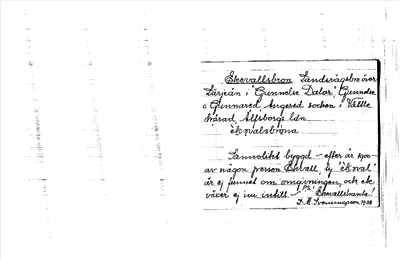 Ekevallsbron, Landsvägsbro över
Lärjeån i "Gunnelse Dalar", Gunnelse
o Gunnared, Angered socken i Vättle
härad, Älfsborgs län.
ekevalsbrona
Sannolikt byggd - efter år 1900 -
av någon person Ekevall, ty "ekeval"
är ej funnet om omgivningen, och ek
växer ej nu intill - "Ekevallsbacke"!
1938